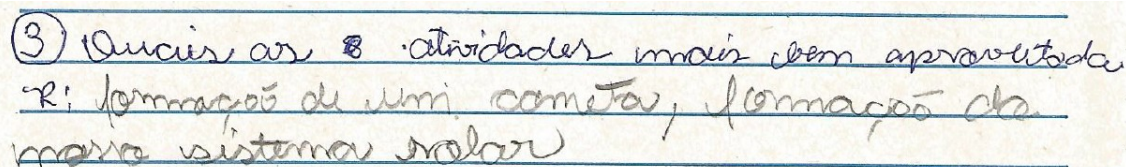 ③ Quais as atividades mais bem aproveitada
R: formaçoõ de um cometa, formaçoõ do
nosso sistema solar